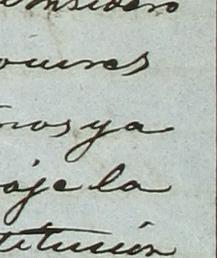 onsidero
ones
nos ya
aje la
titución